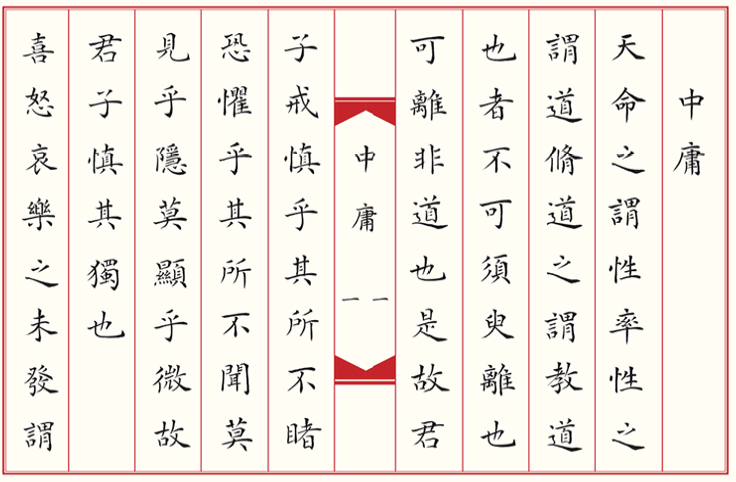 中庸
天命之謂性率性之
謂道脩道之謂教道
也者不可須臾離也
可離非道也是故君
中庸
一一
子戒慎乎其所不睹
恐懼乎其所不聞莫
見乎隱莫顯乎微故
君子慎其獨也
喜怒哀樂之未發謂